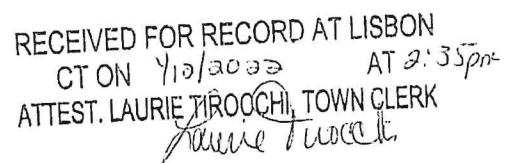 RECEIVED FOR RECORD AT LISBON
CT ON 4/12/2022 AT 2:35pm
ATTEST. LAURIE TIROCCHI, TOWN CLERK
Laurie Tirocchi